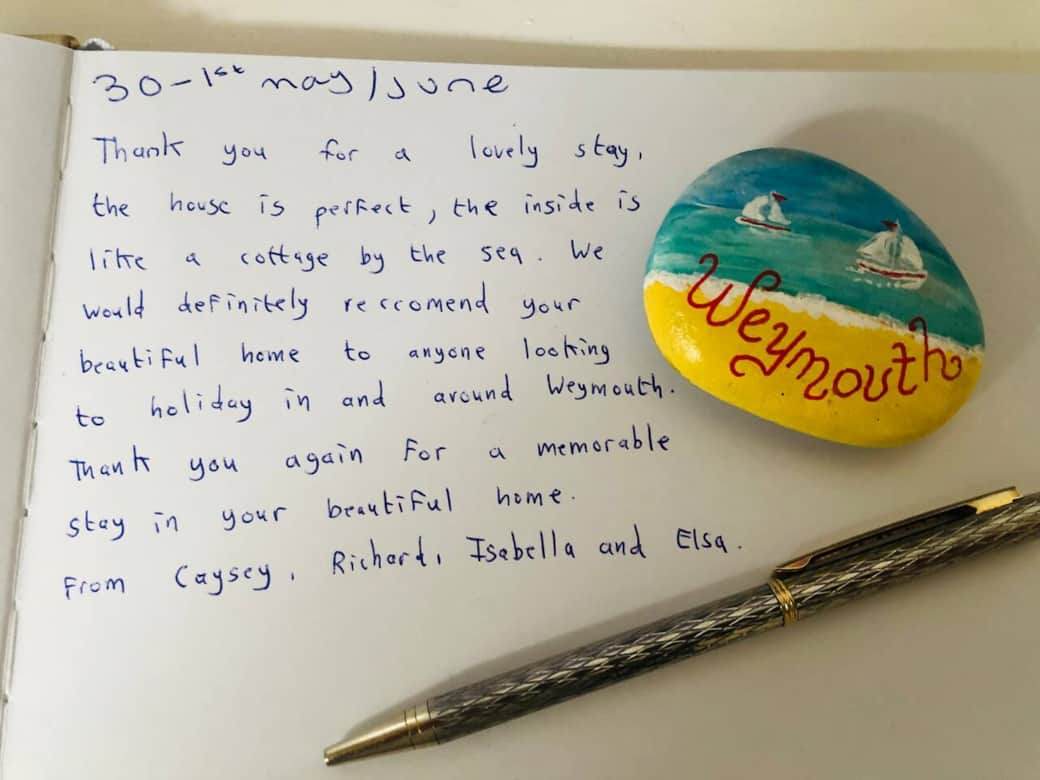 30-1st may/June
Thank you for a lovely stay,
the house is perfect, the inside is
like a cottage by the sea. We
would definitely reccomend your
beautiful home to anyone looking
to holiday in and around Weymouth.
Thank you again for a memorable
stay in your beautiful home.
From Caysey, Richard, Isabella and Elsa.
Weymouth